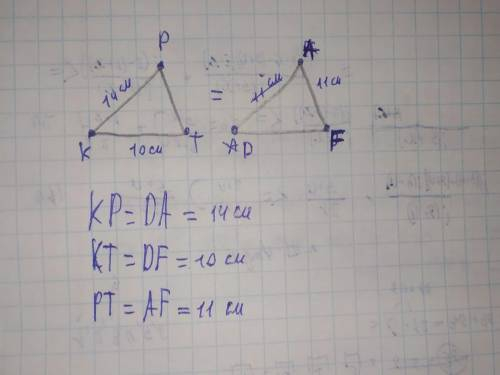 P
A
14 см
11 см
=
K
10 см
T
D
F
KP = DA = 14 см
KT = DF = 10 см
PT = AF = 11 см